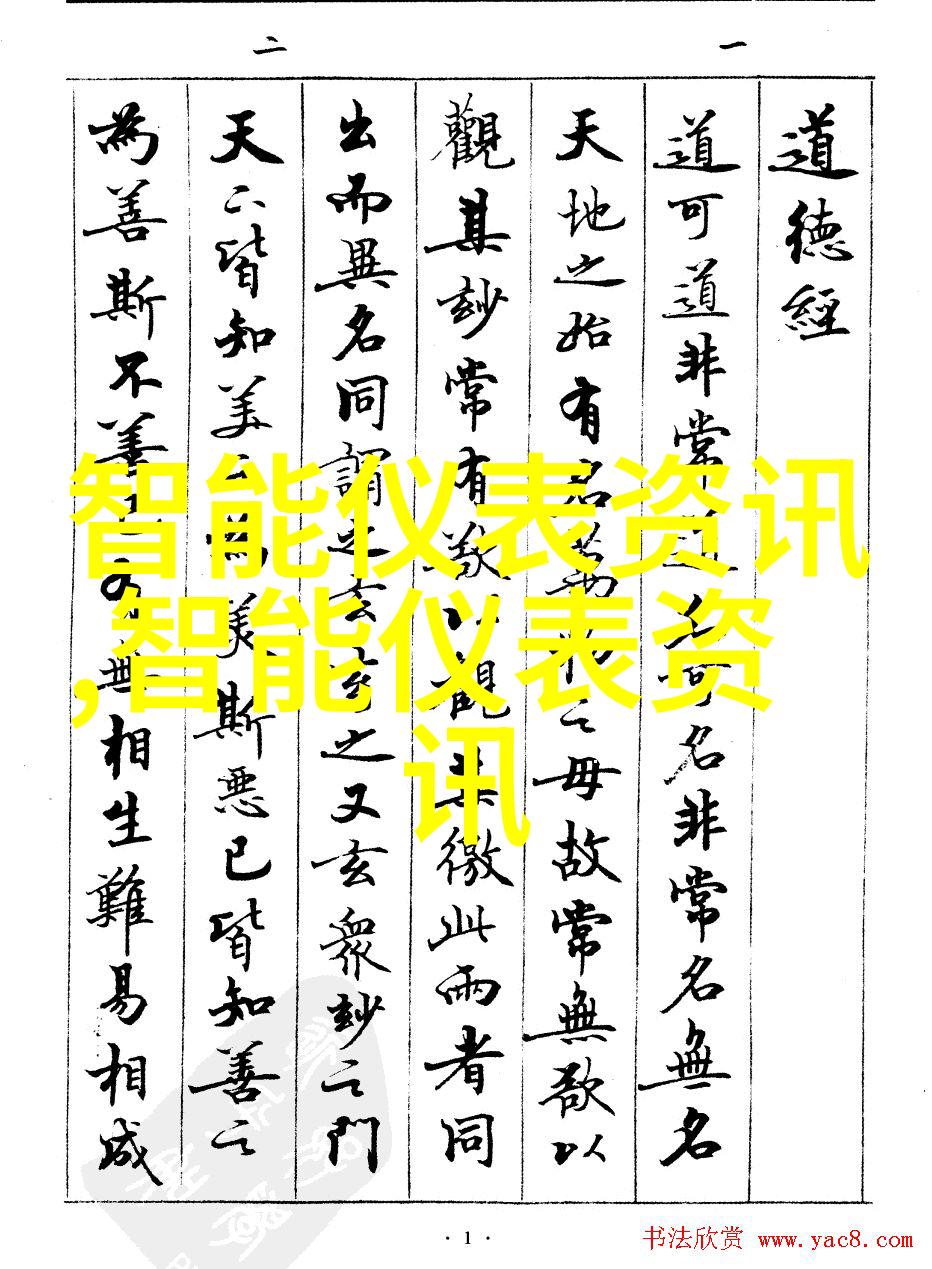 一
二
道德經
道可道非常道名可名非常名無名
天地之始有名萬物之母故常無欲以
觀其玅常有欲以觀其徼此兩者同
出而異名同謂之玄玄之又玄衆玅之門
天下皆知美之為美斯惡已皆知善之
為善斯不善已有無相生難易相成
智能仪表资讯
,智能仪表资
讯
· 1 ·
书法欣赏 www.yac8.com